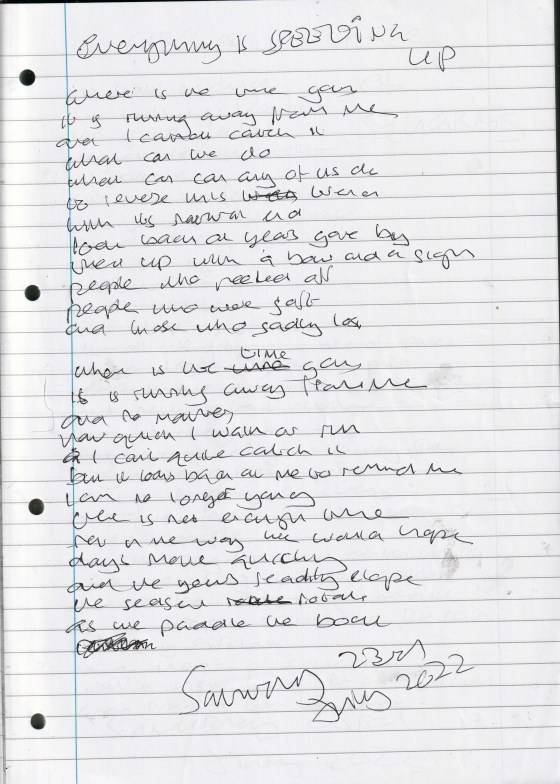 everything is SPEEDING
UP
where is the time going
it is running away from me
and I cannot catch it
what can we do
what can can any of us do
to reverse this trend
with its natural end
look back on years gone by
tied up with a bow and a sigh
people who peeled off
people who were soft
and those who sadly lost
where is the time going
it is running away from me
and no matter
how quick I walk or run
I can't quite catch it
but it looks back at me to remind me
I am no longer young
there is not enough time
not in the way we would hope
days move quickly
and the years steadily elapse
the seasons rotate
as we paddle the boat
Saturday 23rd
July 2022